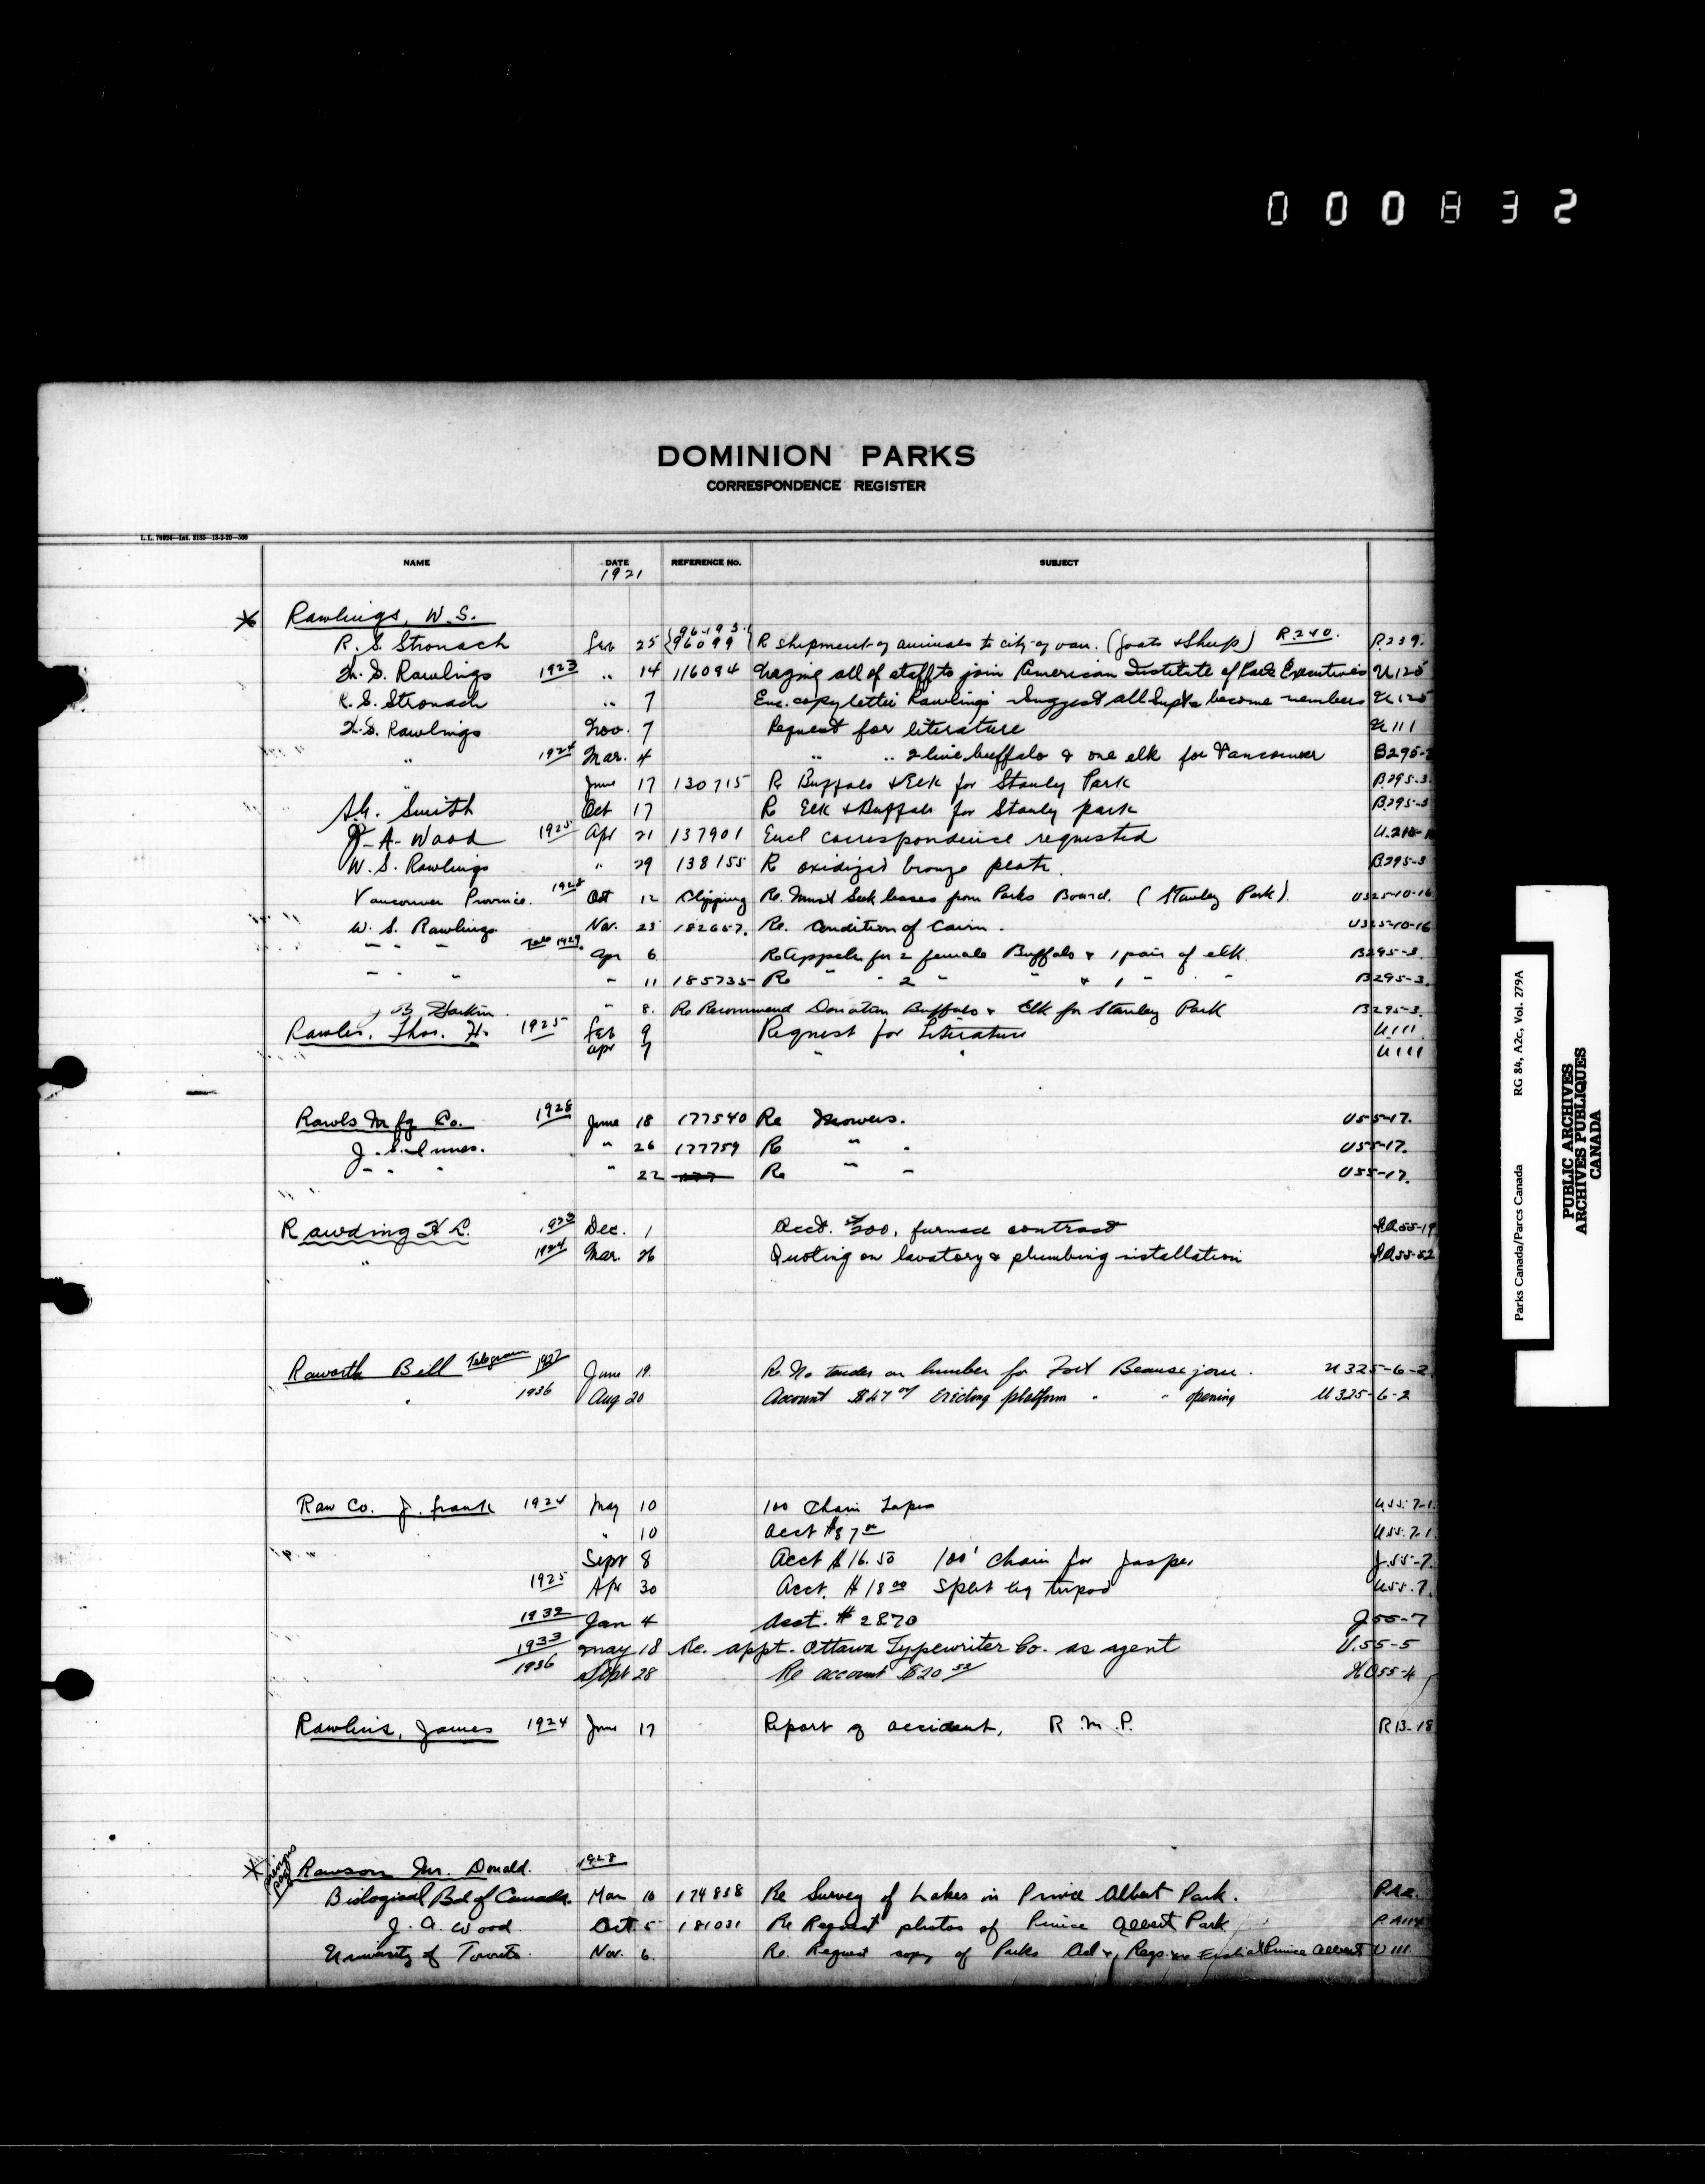 000832
DOMINION PARKS
CORRESPONDENCE REGISTER
NAME DATE REFERENCE No. SUBJECT
1921
Rawlings, W. S.
96193
R. S. Stronach Feb 25 96099 R shipment of animals to city of van. (Goats & Sheep) R240. R239.
W. S. Rawlings 1923 " 14 116094 Urging all of staff to join American Institute of Park Executives U125
R. S. Stronach " 7 Enc. copy letter Rawlings Suggest all Supts become members U125
W. S. Rawlings Nov. 7 Request for literature U111
" 1924 Mar. 4 " " 2 live buffalo & one elk for Vancouver B295-
" June 17 130715 R Buffalo & Elk for Stanley Park B295-3
Smith Oct 17 R Elk & Buffalo for Stanley park B295-3
J. A. Wood 1925 Apr 21 137901 Encl correspondence requested
W. S. Rawlings " 29 138155 R oxidized bronze plate. B295-3
Vancouver Province. 1928 Oct 12 Clipping Re. Must Seek leases from Parks Board. (Stanley Park). U325-10-16
W. S. Rawlings Nov. 23 182657. Re. Condition of Cairn. U325-10-16
" " " 1929 Apr 6 Re Appeln for 2 female Buffalo & 1 pair of elk. B295-3.
" " " " 11 185735 Re " " 2 " " & 1 " " B295-3.
J B Harkin " 8. Re Recommend Donation Buffalo & Elk for Stanley Park B295-3.
Rawles, Thos. H. 1925 Feb 9 Request for Literature U111
Apr 7 " " U111
Rawls Mfg Co. 1928 June 18 177540 Re Mowers. U55-17.
J. S. Innes. " 26 177759 Re " " U55-17.
" " " " 22 Re " " U55-17.
Rawding H L. 1923 Dec. 1 Acct. $200, furnace contract
" 1924 Mar. 26 Quoting on lavatory & plumbing installation
Raworth Bill Telegram 1927 June 19 Re. No tender on lumber for Fort Beausejour. U325-6-2
" 1936 Aug 20 Account erecting platform " " opening U325-6-2
Raw Co. J. Frank 1924 May 10 100 Chain Tapes U55-7-1.
" 10 Acct $87 00 U55-7-1
Sept 8 Acct $16.50 100' Chain for Jasper J55-7.
1925 Apr 30 Acct. $18 00 Split leg tripod U55-7.
1932 Jan 4 Acct. $28.70 J55-7
1933 May 18 Re. appt. Ottawa Typewriter Co. as agent U.55-5
1936 Sept 28 Re account
Rawlins, James 1924 June 17 Report of accident, R. M. P. R13-18
Rawson Mr. Donald. 1928
Biological Bd of Canada. Mar 16 174838 Re Survey of Lakes in Prince Albert Park. P.A2.
J. A. Wood Oct. 5 181031 Re Request photos of Prince Albert Park
University of Toronto. Nov. 6. Re. Request copy of Parks Act & Regs. Prince Albert U111.
Parks Canada/Parcs Canada RG 84, A2c, Vol. 279A
PUBLIC ARCHIVES
ARCHIVES PUBLIQUES
CANADA